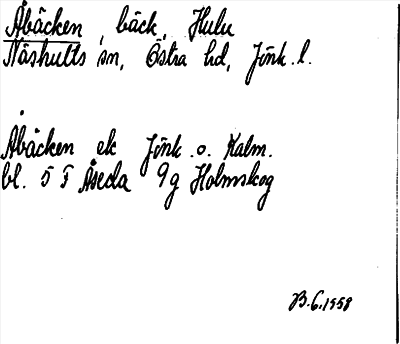 Åbäcken, bäck, Hulu
Näshults sn, Östra hd, Jönk.l.
Åbäcken ek Jönk. o. Kalm.
bl. 5 F Åseda 9g Holmskog
B.G.1958